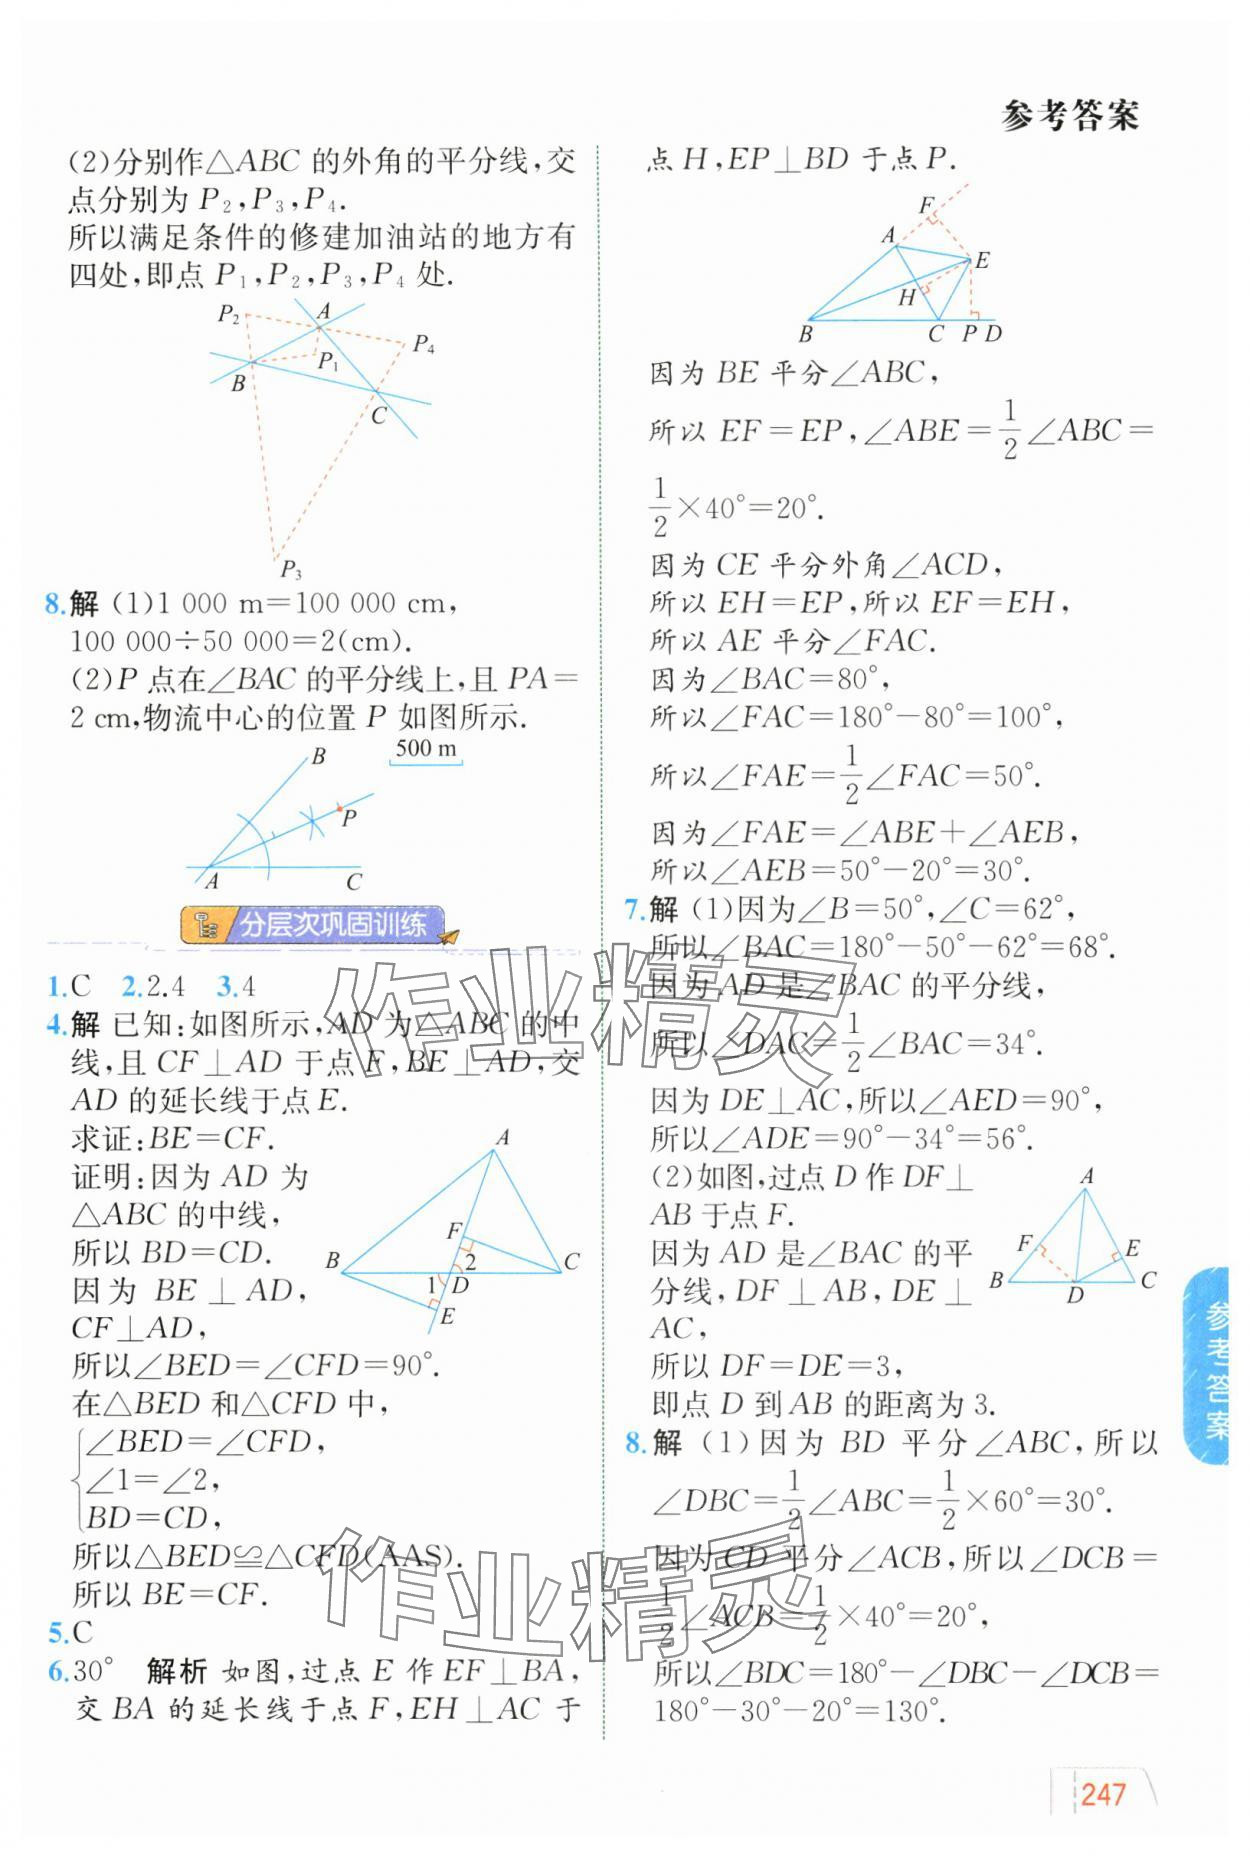 参考答案
(2)分别作△ABC 的外角的平分线,交
点分别为 P₂,P₃,P₄.
所以满足条件的修建加油站的地方有
四处,即点 P₁,P₂,P₃,P₄ 处.
P₂
A
P₄
P₁
B
C
P₃
8.解 (1)1 000 m=100 000 cm,
100 000÷50 000=2(cm).
(2)P 点在∠BAC 的平分线上,且 PA=
2 cm,物流中心的位置 P 如图所示.
B
500 m
P
A
C
分层次巩固训练
1.C 2.2.4 3.4
4.解 已知:如图所示,AD 为△ABC 的中
线,且 CF⊥AD 于点 F,BE⊥AD,交
AD 的延长线于点 E.
求证:BE=CF.
证明:因为 AD 为
△ABC 的中线,
所以 BD=CD.
因为 BE⊥AD,
CF⊥AD,
A
F
2
B
1
D
C
E
所以∠BED=∠CFD=90°.
在△BED 和△CFD 中,
∠BED=∠CFD,
∠1=∠2,
BD=CD,
所以△BED≌△CFD(AAS).
所以 BE=CF.
5.C
6.30° 解析 如图,过点 E 作 EF⊥BA,
交 BA 的延长线于点 F,EH⊥AC 于
点 H,EP⊥BD 于点 P.
F
A
E
H
B
C P D
因为 BE 平分∠ABC,
所以 EF=EP,∠ABE=1/2∠ABC=
1/2×40°=20°.
因为 CE 平分外角∠ACD,
所以 EH=EP,所以 EF=EH,
所以 AE 平分∠FAC.
因为∠BAC=80°,
所以∠FAC=180°−80°=100°,
所以∠FAE=1/2∠FAC=50°.
因为∠FAE=∠ABE+∠AEB,
所以∠AEB=50°−20°=30°.
7.解 (1)因为∠B=50°,∠C=62°,
所以∠BAC=180°−50°−62°=68°.
因为 AD 是∠BAC 的平分线,
所以∠DAC=1/2∠BAC=34°.
因为 DE⊥AC,所以∠AED=90°,
所以∠ADE=90°−34°=56°.
(2)如图,过点 D 作 DF⊥
AB 于点 F.
因为 AD 是∠BAC 的平
分线,DF⊥AB,DE⊥
AC,
A
F
E
B
D
C
所以 DF=DE=3,
即点 D 到 AB 的距离为 3.
8.解 (1)因为 BD 平分∠ABC,所以
∠DBC=1/2∠ABC=1/2×60°=30°.
因为 CD 平分∠ACB,所以∠DCB=
1/2∠ACB=1/2×40°=20°,
所以∠BDC=180°−∠DBC−∠DCB=
180°−30°−20°=130°.
参考答案
247
作业精灵
作业精灵